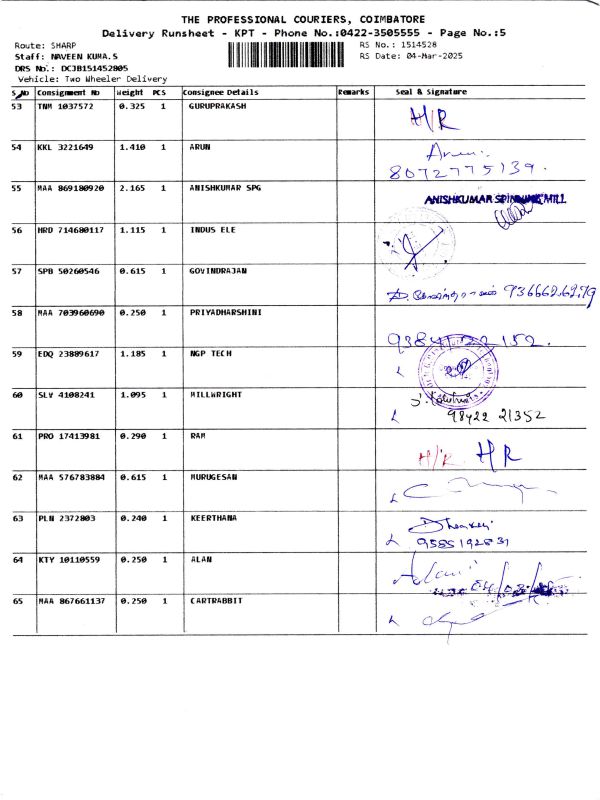 THE PROFESSIONAL COURIERS, COIMBATORE
Delivery Runsheet - KPT - Phone No.:0422-3505555 - Page No.:5
Route: SHARP RS No.: 1514528
Staff: NAVEEN KUMA.S RS Date: 04-Mar-2025
DRS No.: DCJB151452805
Vehicle: Two Wheeler Delivery
S.No Consignment No Weight PCS Consignee Details Remarks Seal & Signature
53 TNM 1037572 0.325 1 GURUPRAKASH H/R
54 KKL 3221649 1.410 1 ARUN Arun
8072775139.
55 MAA 869180920 2.165 1 ANISHKUMAR SPG ANISHKUMAR SPINNING MILL
56 HRD 714680117 1.115 1 INDUS ELE
57 SPB 50260546 0.615 1 GOVINDRAJAN
9366626279
58 MAA 703960690 0.250 1 PRIYADHARSHINI
59 EDQ 23889617 1.185 1 NGP TECH
60 SLV 4108241 1.095 1 MILLWRIGHT
98422 21352
61 PRO 17413981 0.290 1 RAM H/R HR
62 MAA 576783884 0.615 1 MURUGESAN
63 PLN 2372803 0.240 1 KEERTHANA
9585192831
64 KTY 10110559 0.250 1 ALAN
65 MAA 867661137 0.250 1 CARTRABBIT